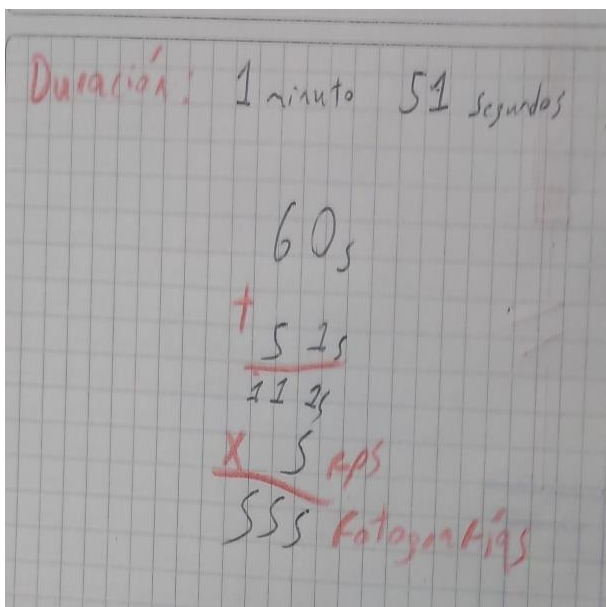 Duración: 1 minuto 51 segundos
60s
+
51s
111s
x 5 FPS
555 Fotografías